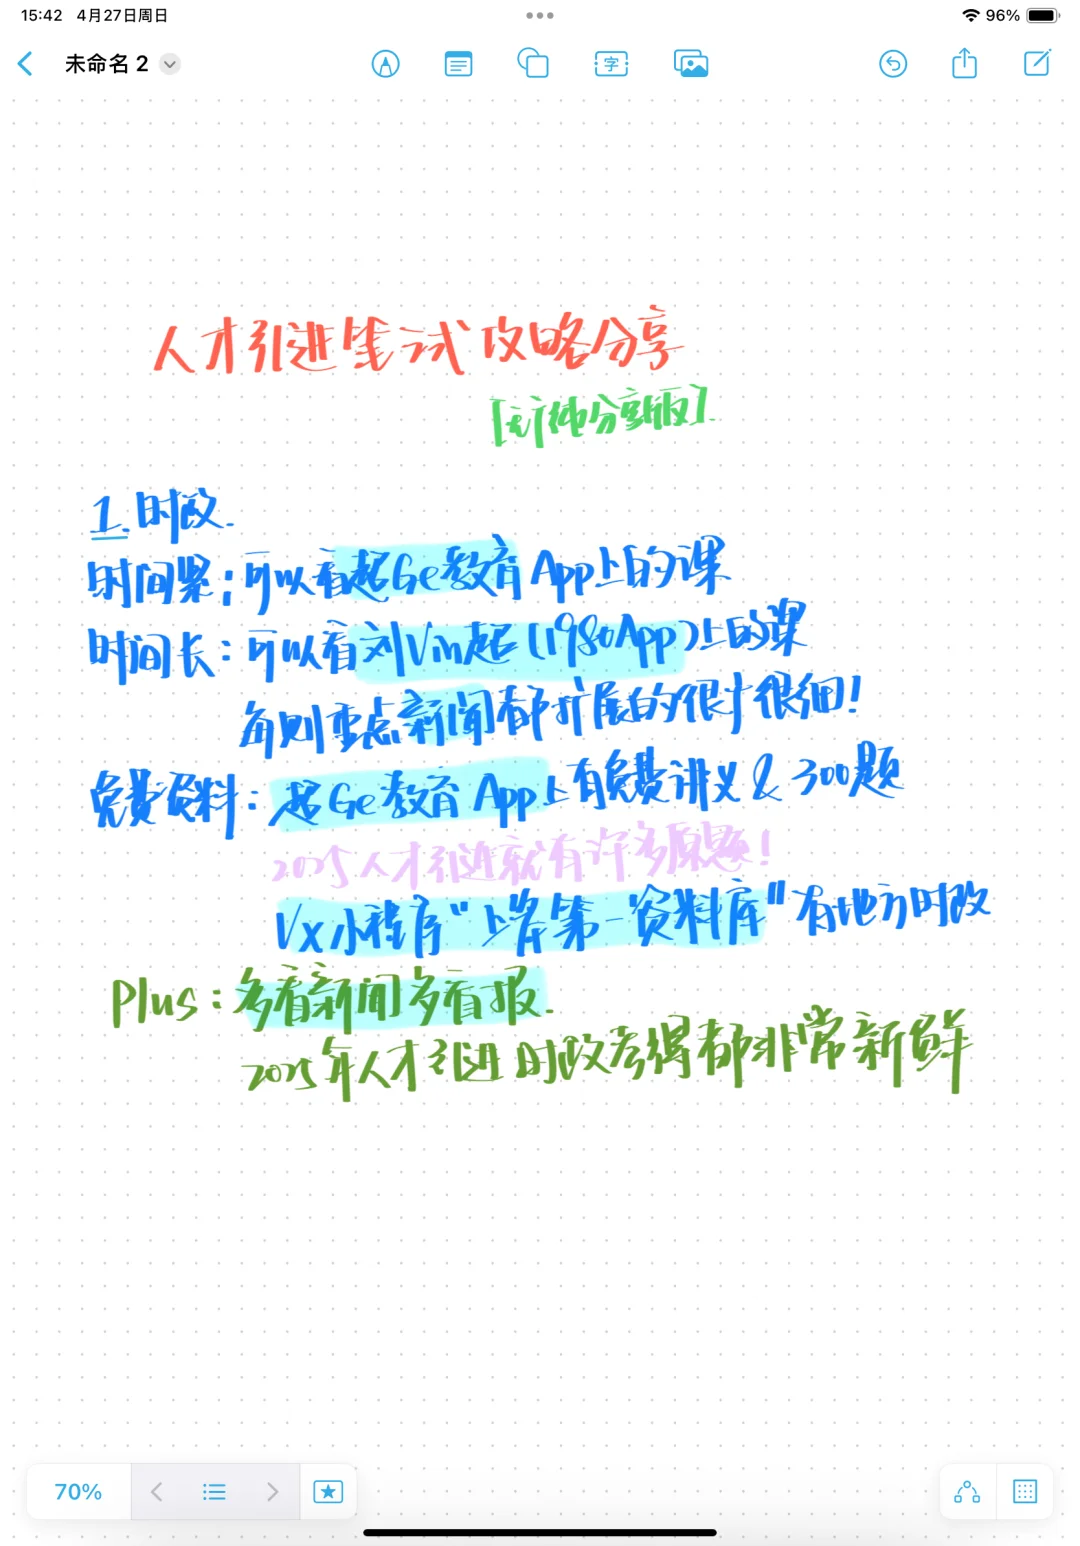 15:42 4月27日周日
96%
未命名 2
字
人才引进笔试攻略分享
[无广纯分享版]
1.时政.
时间紧:可以看超Ge教育App上的课
时间长:可以看刘Vin超(1980App)上的课
每则重点新闻都扩展的很广很细!
免费资料:超Ge教育App上有免费讲义&300题
2025人才引进就有许多原题!
Vx小程序“上岸第一资料库”有地方时政
Plus:多看新闻多看报.
2025年人才引进时政考得都非常新鲜
70%